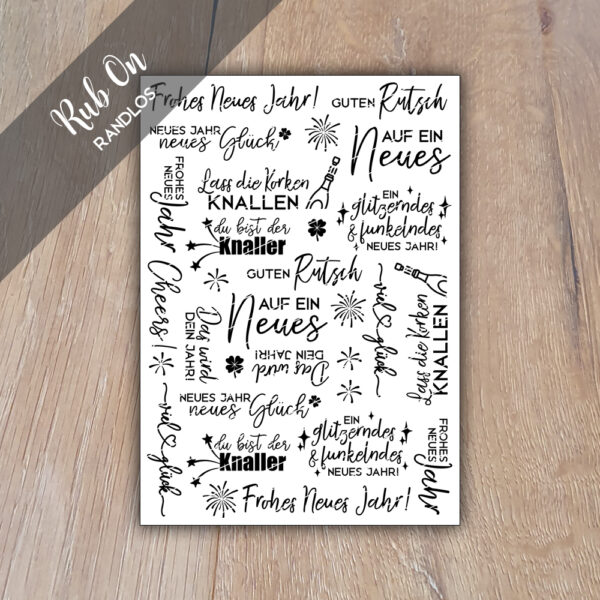 Rub On
RANDLOS
Frohes Neues Jahr!
GUTEN Rutsch
NEUES JAHR
neues Glück
AUF EIN
Neues
FROHES
NEUES
Jahr
Lass die Korken
KNALLEN
EIN
glitzerndes
& funkelndes
NEUES JAHR!
du bist der
Knaller
Cheers!
GUTEN Rutsch
AUF EIN
Neues
viel glück
Lass die Korken
KNALLEN
Das wird
DEIN JAHR!
Das wird
DEIN JAHR!
NEUES JAHR
neues Glück
viel glück
du bist der
Knaller
EIN
glitzerndes
& funkelndes
NEUES JAHR!
FROHES
NEUES
Jahr
Frohes Neues Jahr!